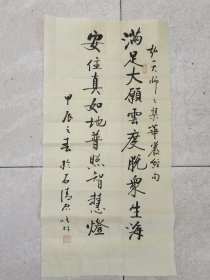 弘一大师之集華嚴經句
滿足大願雲度脫衆生海
安住真如地普照智慧燈
甲辰之春於石